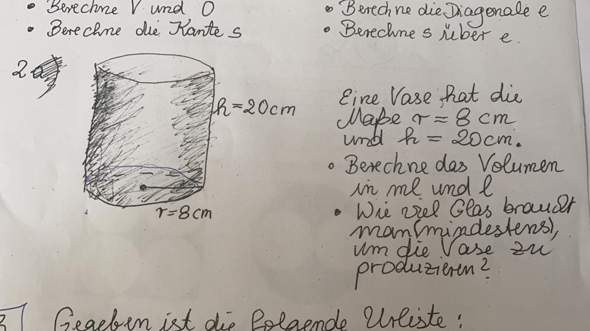 • Berechne V und O
• Berechne die Kante s
• Berechne die Diagonale e
• Berechne s über e.
2
h = 20cm
r = 8 cm
Eine Vase hat die
Maße r = 8 cm
und h = 20cm.
• Berechne das Volumen
in ml und l
• Wie viel Glas braucht
man (mindestens),
um die Vase zu
produzieren?
3 Gegeben ist die folgende Urliste: